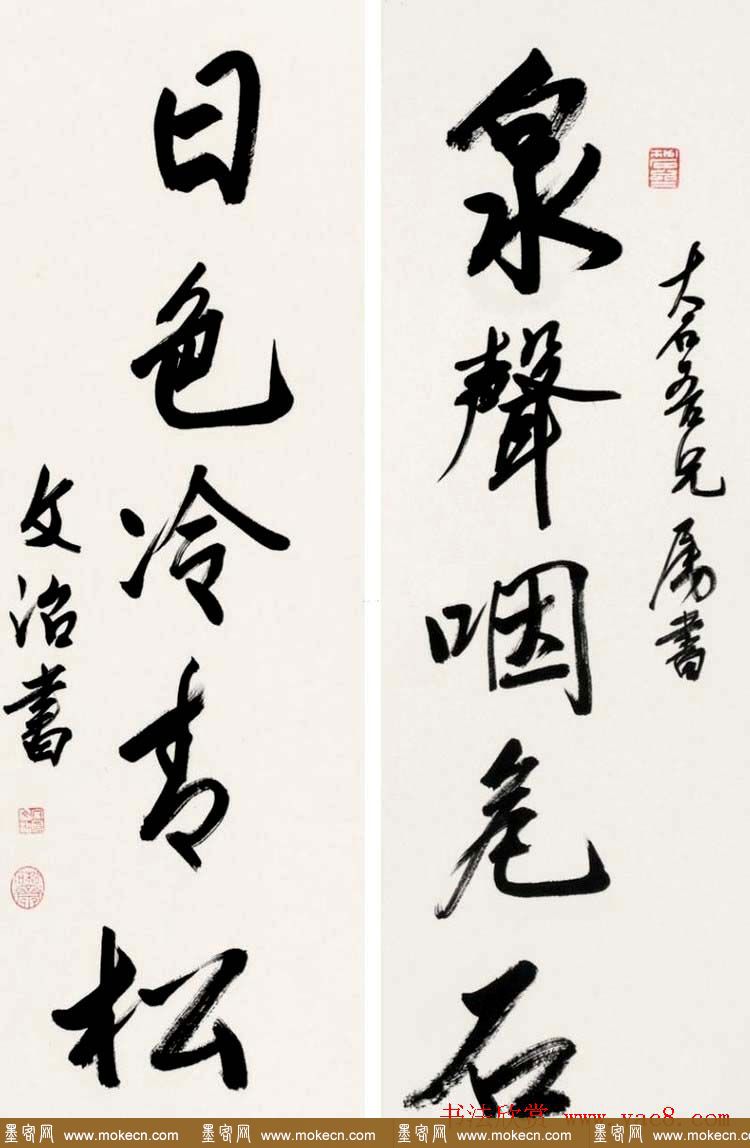 大石吾兄属书
泉聲咽危石
日色冷青松
文治書
书法欣赏 www.yac8.com
墨客网 www.mokecn.com 墨客网 www.mokecn.com 墨客网 www.mokecn.com 墨客网 www.mokecn.com